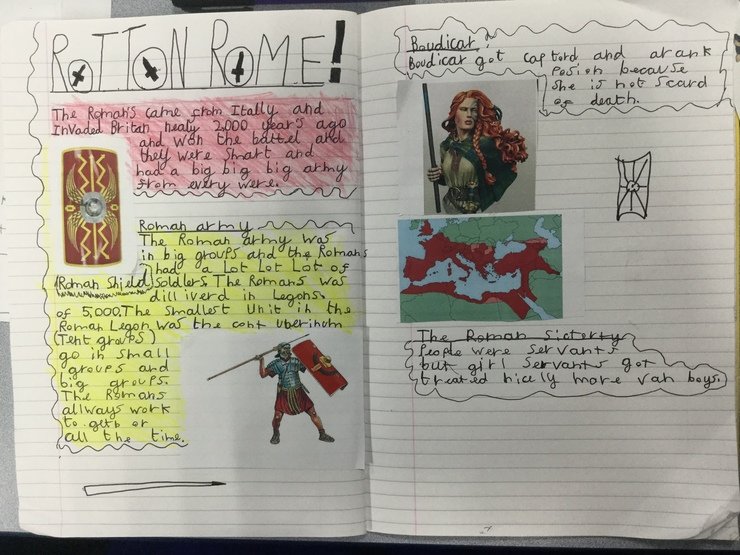 ROTTON ROME!
The Roman's came from Itally and
Invaded Britan nealy 2,000 year's ago
and won the battel and
they were smart and
had a big big big army
from every were.
Roman army
The Roman army was
in big groups and the Romans
had a Lot Lot Lot of
(Roman Shield) Soldlers. The Romans was
dilliverd in Legons
of 5,000. The smallest unit in the
Roman Legon was the cont uberinum
(Tent groups)
go in small
groups and
big groups.
The Romans
allways work
to getb or
all the time.
Boudicar:
Boudicar got captord and drank
Posion because
she is not scard
of death.
The Roman sicterty
People were servants
but girl servants got
treated nicely more van boys.